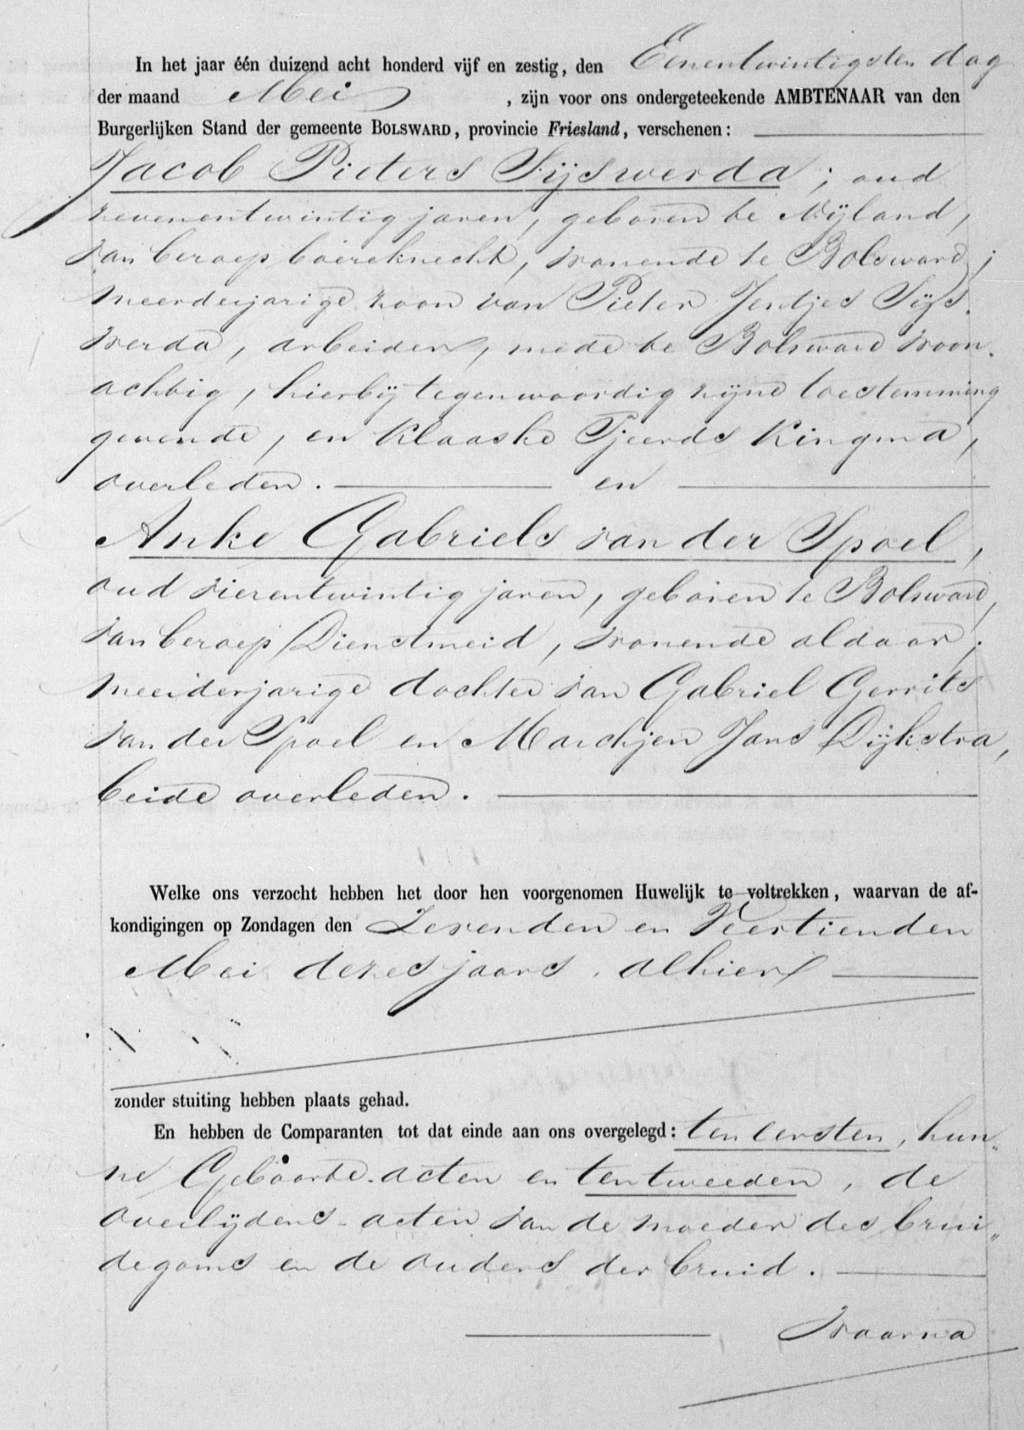 In het jaar één duizend acht honderd vijf en zestig, den Eenentwintigsten dag
der maand Mei , zijn voor ons ondergeteekende AMBTENAAR van den
Burgerlijken Stand der gemeente BOLSWARD, provincie Friesland, verschenen:
Jacob Pieters Sijswerda; oud
zevenentwintig jaren, geboren te Nijland,
van beroep boereknecht, wonende te Bolsward;
meerderjarige zoon van Pieter Jentjes Sijs-
werda, arbeider, mede te Bolsward woon-
achtig, hierbij tegenwoordig zijne toestemming
gevende, en Klaaske Tjeerds Kingma,
overleden. en
Anke Gabriels van der Spoel,
oud vierentwintig jaren, geboren te Bolsward,
van beroep Dienstmeid, wonende aldaar;
meerderjarige dochter van Gabriel Gerrits
van der Spoel en Marchjen Jans Dijkstra,
beide overleden.
Welke ons verzocht hebben het door hen voorgenomen Huwelijk te voltrekken, waarvan de af-
kondigingen op Zondagen den Zevenden en Veertienden
Mei dezes jaars, alhier
zonder stuiting hebben plaats gehad.
En hebben de Comparanten tot dat einde aan ons overgelegd: ten eersten, hun„
ne Geboorte-acten en ten tweeden, de
overlijdens-acten van de moeder des brui„
degoms en de ouders der bruid.
Waarna